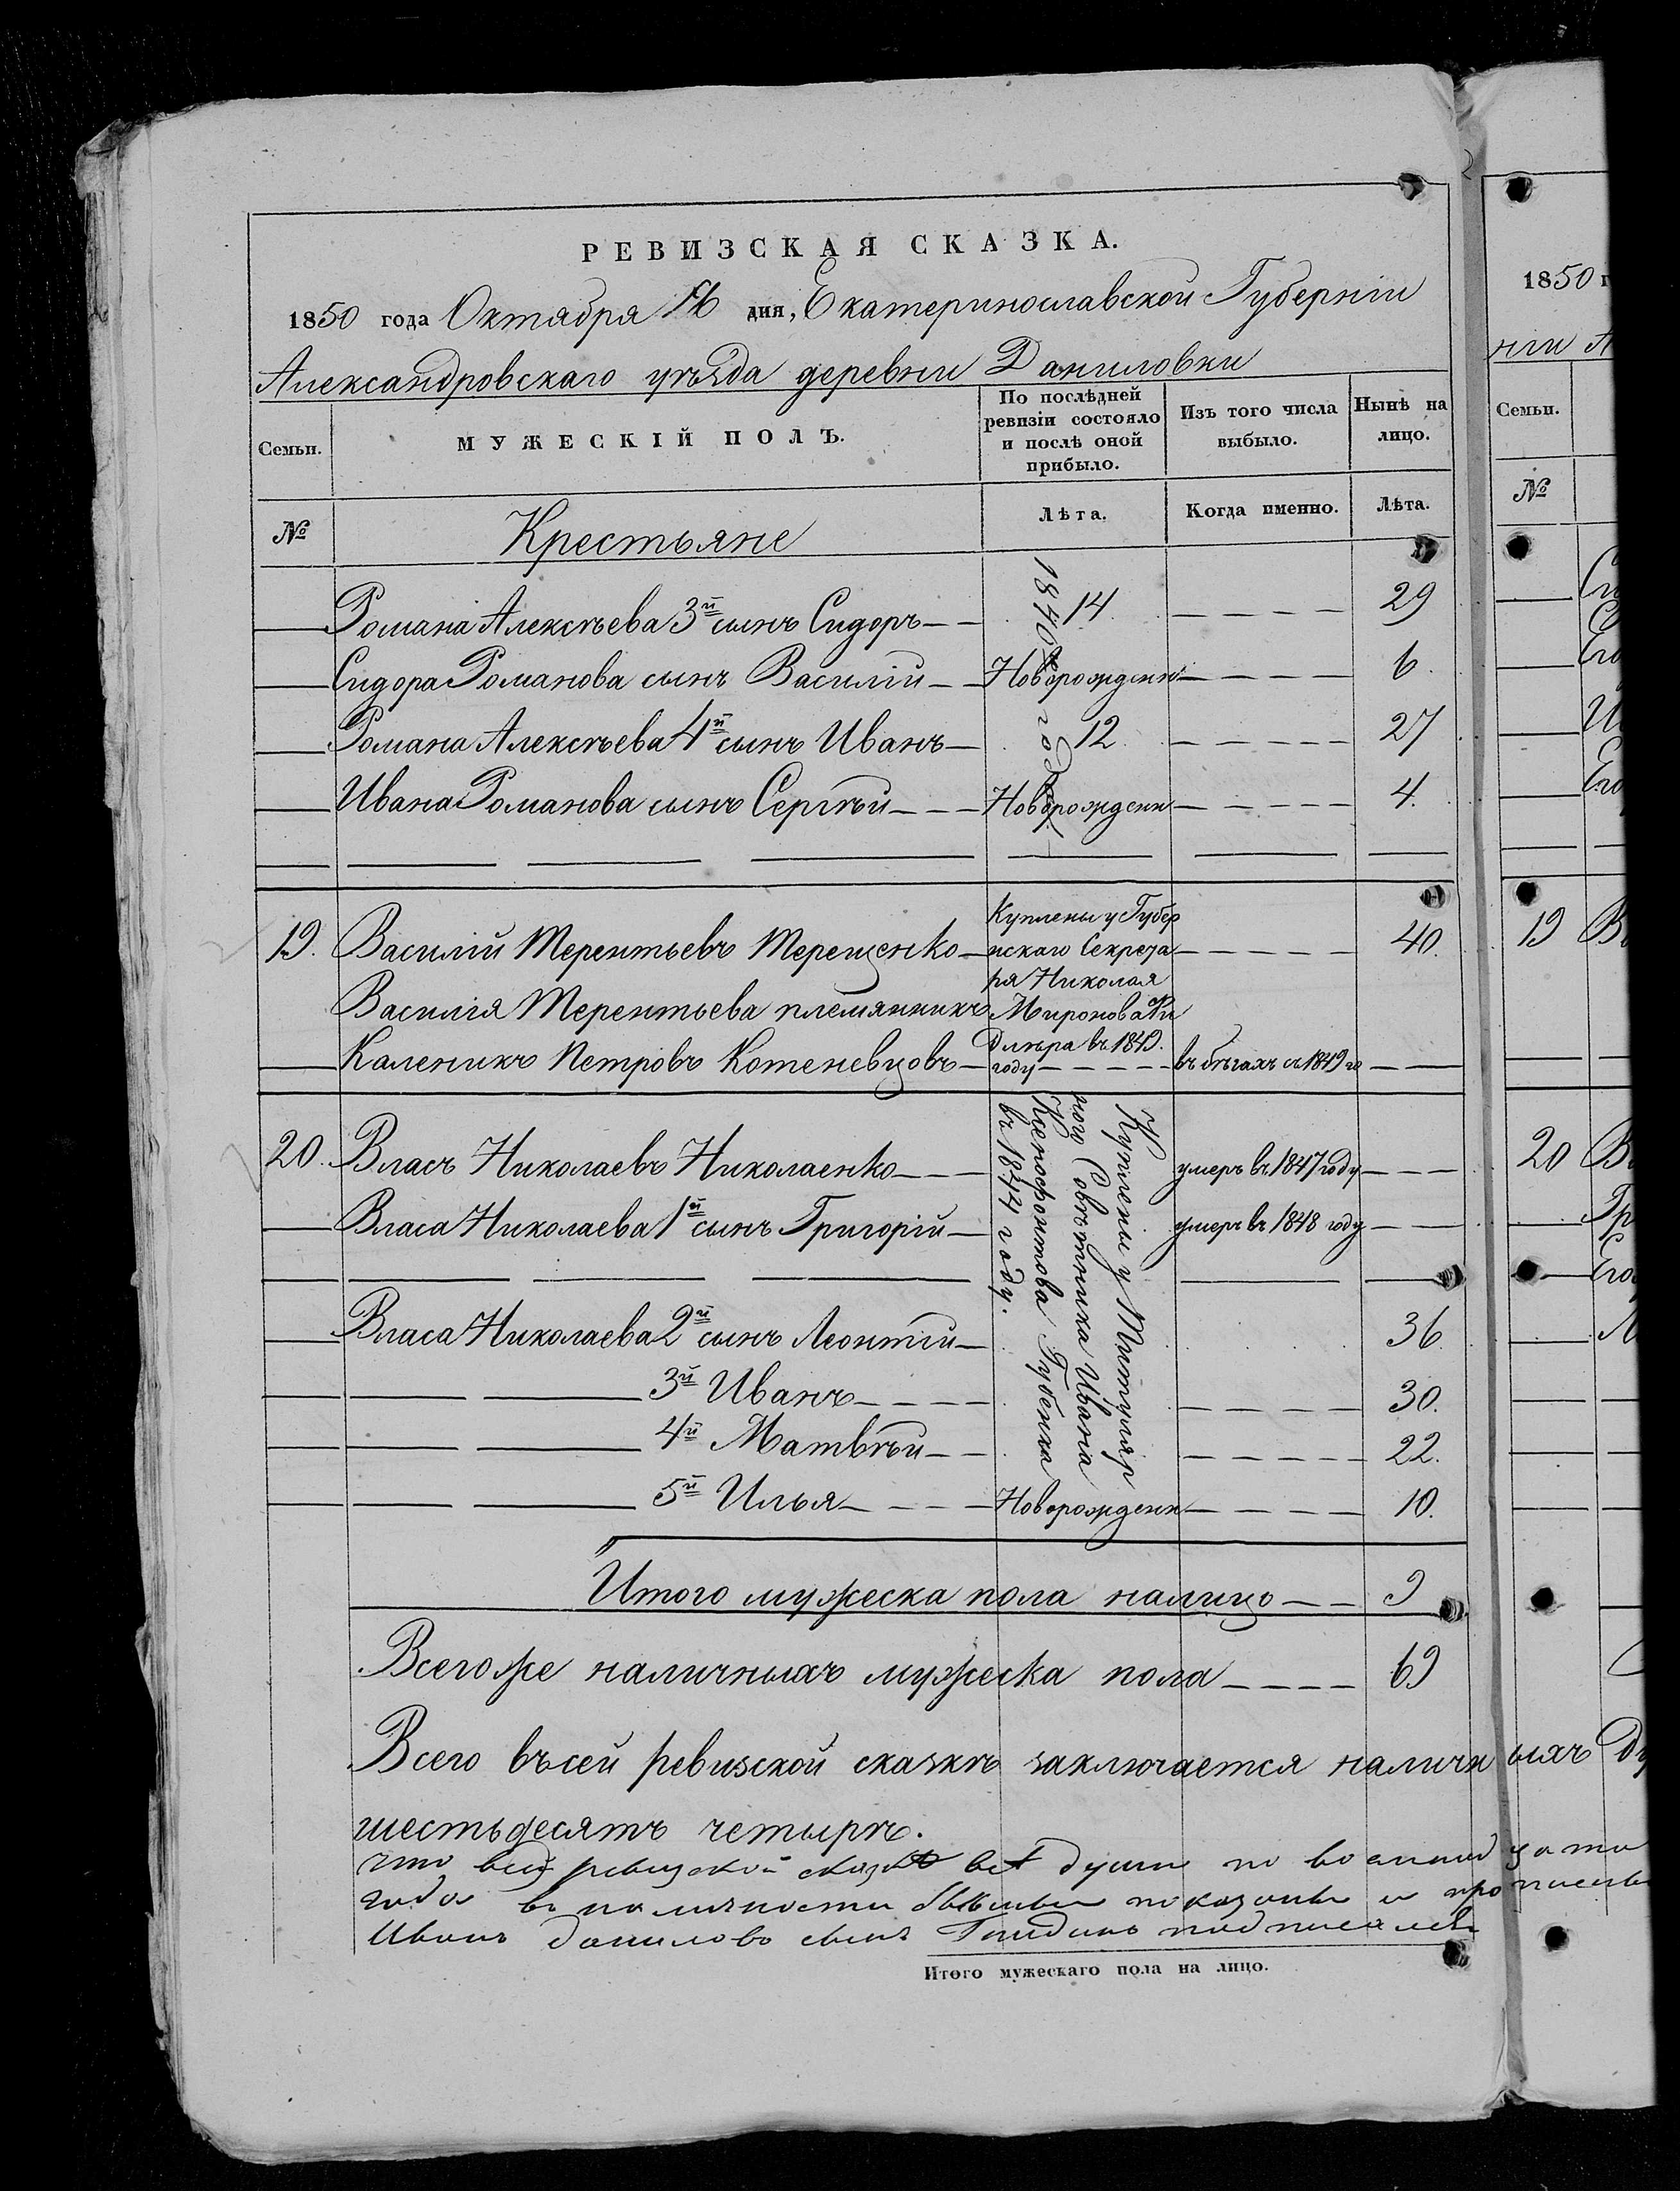 РЕВИЗСКАЯ СКАЗКА.
1850 года Октября 16 дня, Екатеринославской Губерніи
Александровскаго уѣзда деревни Даниловки
Семьи.
МУЖЕСКІЙ ПОЛЪ.
По послѣдней ревизіи состояло и послѣ оной прибыло.
Изъ того числа выбыло.
Нынѣ на лицо.
№
Крестьяне
Лѣта.
Когда именно.
Лѣта.
Романа Алексѣева 3й сынъ Сидоръ 14 29
Сидора Романова сынъ Василій Новорожден 6
Романа Алексѣева 4й сынъ Иванъ 12 27
Ивана Романова сынъ Сергѣй Новорожден 4.
1840
19. Василій Терентьевъ Терещенко 40.
Василія Терентьева племянникъ
Каленикъ Петровъ Котеневцовъ въ бѣгахъ съ 1849 го
Куплены у Губер
нскаго Секрета
ря Николая
Миронова
въ 1849.
году
20. Власъ Николаевъ Николаенко умеръ въ 1847 году
Власа Николаева 1й сынъ Григорій умеръ въ 1848 году
Власа Николаева 2й сынъ Леонтій 36.
3й Иванъ 30.
4й Матвѣй 22.
5й Илья Новорожден 10.
Куплены у Титуляр
ного Совѣтника Ивана
Ксенофонтова Губенка
въ 1844 году.
Итого мужеска пола налицо 9
Всегоже наличныхъ мужеска пола 69
Всего въсей ревизской сказкѣ заключается наличн ыхъ
шестьдесятъ четырѣ.
что ревизской души по
года въ наличности показаны и
Иванъ Даниловъ сынъ подписалсь
Итого мужескаго пола на лицо.
1850 г
ніи А
Семьи.
№
19
20